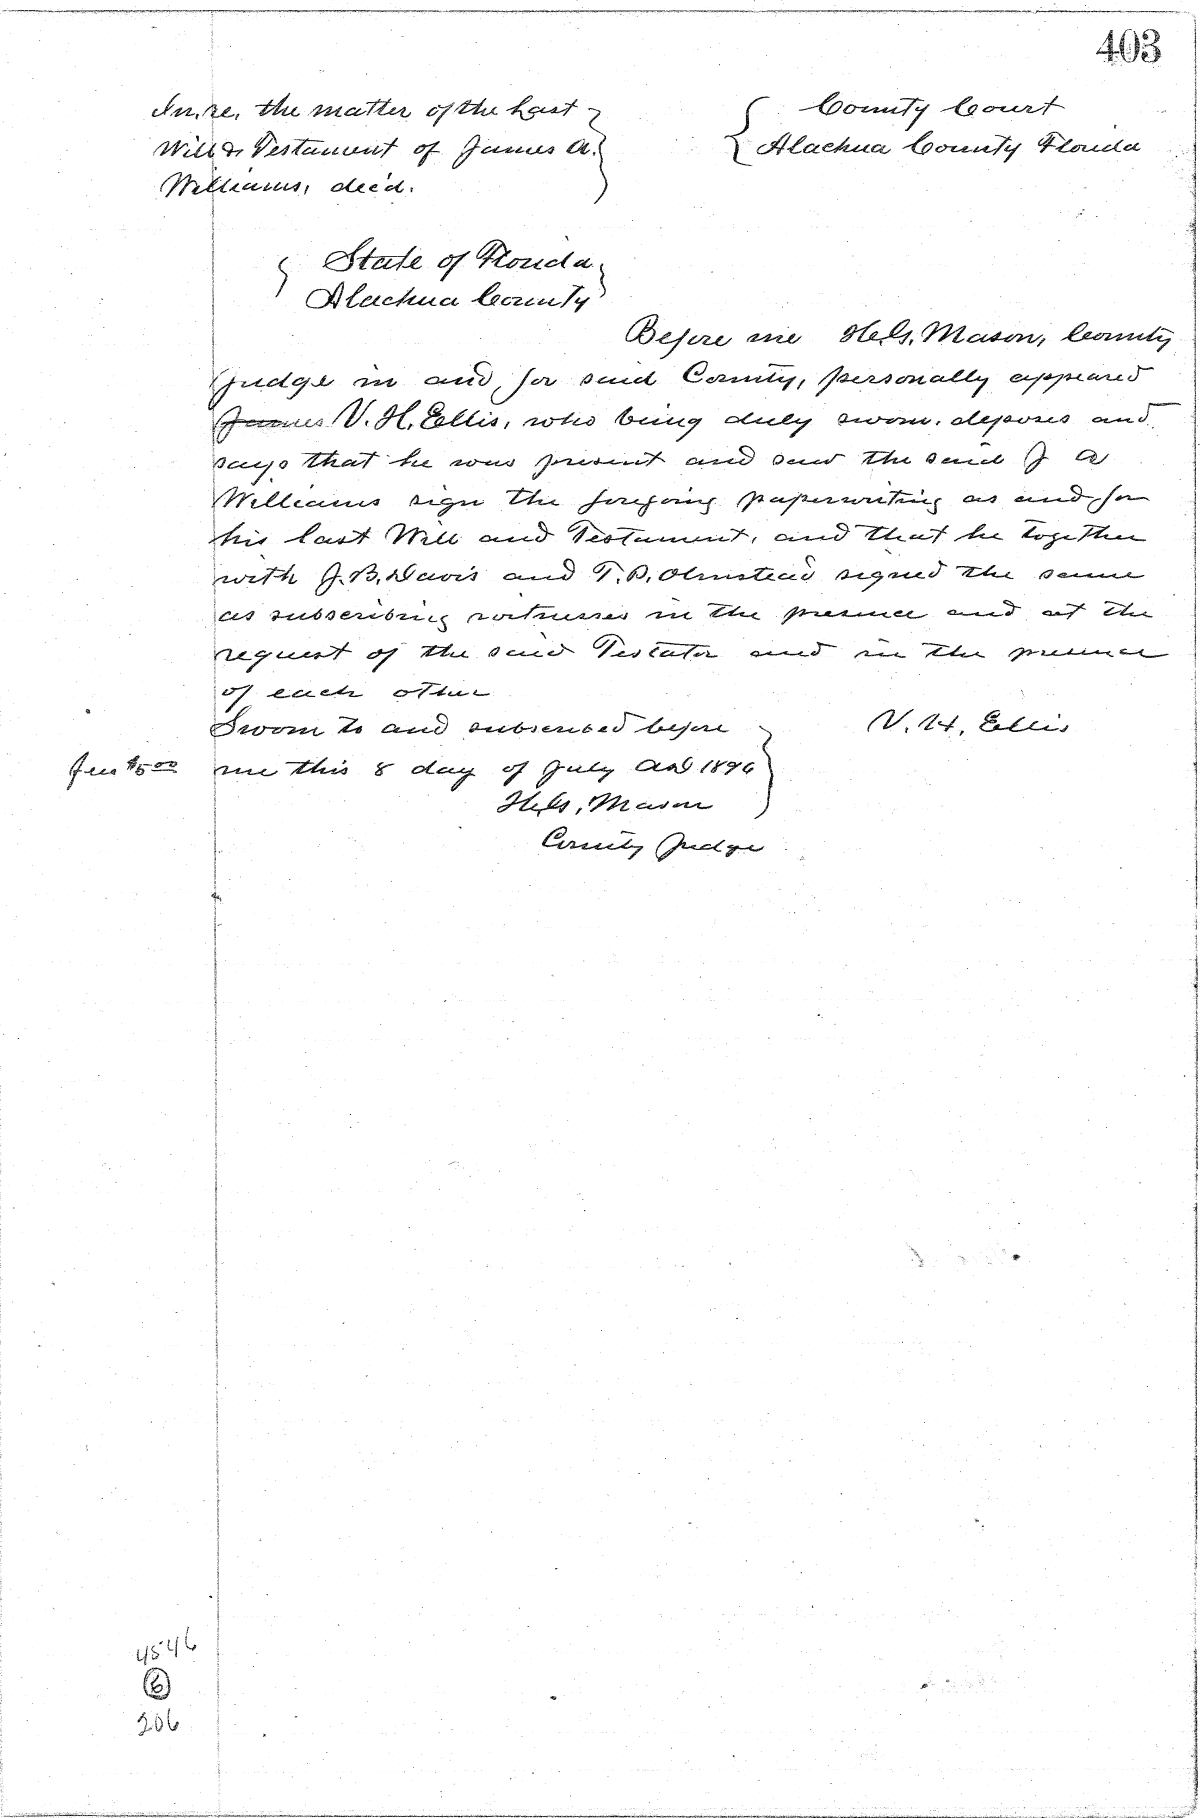 403
In, re, the matter of the Last
Will & Testament of James A.
Williams, dec'd.
County Court
Alachua County Florida
State of Florida
Alachua County
Before me H. G. Mason, County
Judge in and for said County, personally appeared
James V. H. Ellis, who being duly sworn. deposes and
says that he was present and saw the said J A
Williams sign the foregoing paperwriting as and for
his last Will and Testament, and that he together
with J. B. Davis and T. B. Olmstead signed the same
as subscribing witnesses in the presence and at the
request of the said Testator and in the presence
of each other
Sworn to and subscribed before
V. H. Ellis
Fees $5.00
me this 8 day of July AD 1896
H. G. Mason
County Judge
4546
6
206